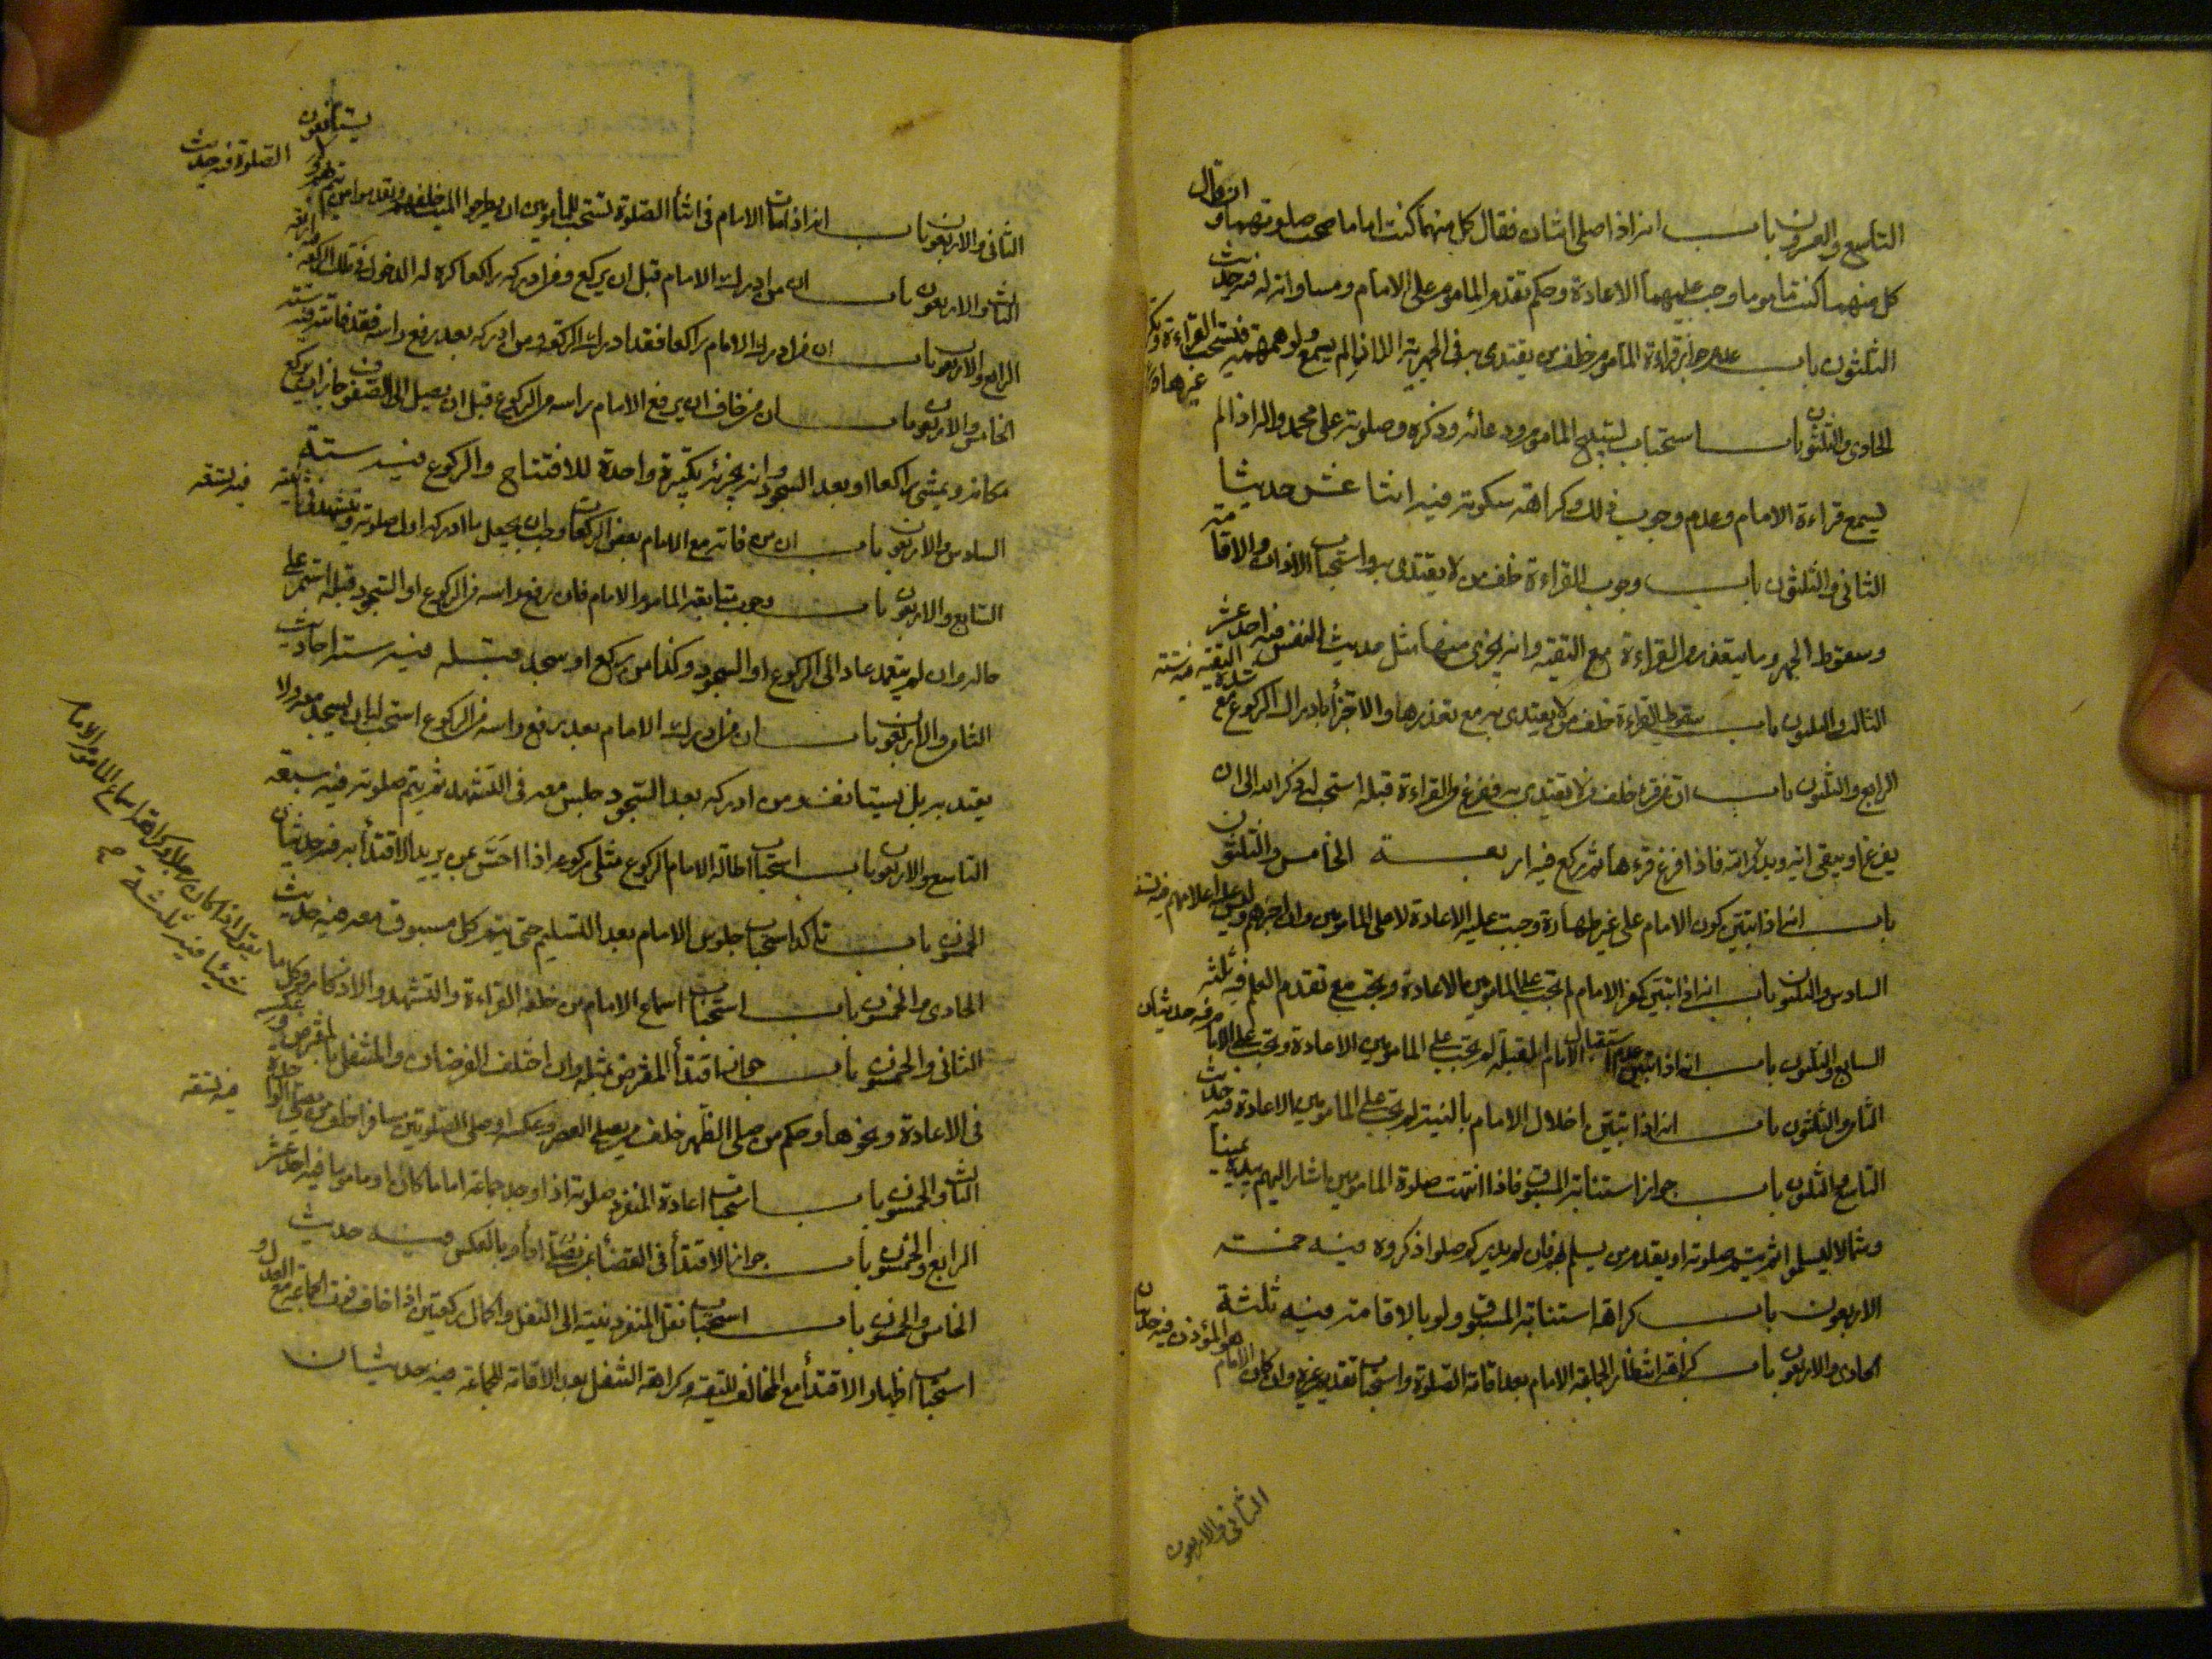 التاسع والعشرون باب انه اذا صلى اثنان فقال كل منهما كنت اماما صحت صلوتهما وان قال
كل منهما كنت ماموما وجب عليهما الاعادة وحكم تقدم الماموم على الامام ومساواته له فيه حديث
الثلثون باب عدم جواز قراءة الماموم خلف من يقتدى به في الجهرية الا اذا لم يسمع ولو همهمة فتستحب القراءة
الحادى والثلثون باب استحباب تسبيح الماموم ودعائه وذكره وصلوته على محمد واله اذا لم
يسمع قراءة الامام وعدم وجوب ذلك وكراهة سكوته فيه اثنا عشر حديثا
الثانى والثلثون باب وجوب القراءة خلف من لا يقتدى به واستحباب الاذان والاقامة
وسقوط الجهر وما يتعذر من القراءة مع التقية وانه يجزى منها مثل حديث النفس فيه احد عشر
الثالث والثلثون باب سقوط القراءة خلف من لا يقتدى به مع تعذرها والاجتزاء بادراك الركوع مع شدة التقية فيه ستة
الرابع والثلثون باب ان من قرء خلف من لا يقتدى به ففرغ من القراءة قبله استحب له ذكر الله الى ان
يفرغ او يبقى اية ويذكر الله فاذا فرغ قرءها ثم ركع فيه اربعة الخامس والثلثون
باب انه اذا تبين كون الامام على غير طهارة وجبت عليه الاعادة لا على المامومين وان اخبرهم وليس عليه اعلامهم فيه تسعة
السادس والثلثون باب انه اذا تبين كفر الامام لم تجب على المامومين الاعادة وتجب مع تقدم العلم فيه ثلثة
السابع والثلثون باب انه اذا تبين عدم استقبال الامام القبلة لم تجب على المامومين الاعادة وتجب على الامام فيه حديثان
الثامن والثلثون باب انه اذا تبين اخلال الامام بالنية لم تجب على المامومين الاعادة فيه حديث
التاسع والثلثون باب جواز استنابة المسبوق فاذا انتهت صلوة المامومين اشار اليهم بيده يمينا
وشمالا ليسلموا ثم يتم صلوته او يقدم من يسلم بهم فان لم يدر كم صلوا ذكروه فيه خمسة
الاربعون باب كراهة استنابة المسبوق ولو بالاقامة فيه ثلثة
الحادى والاربعون باب كراهة انتظار الجماعة الامام بعد اقامة الصلوة واستحباب تقديم غيره وان كان الامام هو المؤذن فيه حديثان
الثانى والاربعون
الثانى والاربعون باب انه اذا مات الامام في اثناء الصلوة يستحب للمامومين ان يطرحوا الميت خلفهم ويقدموا من يتم بهم
الثالث والاربعون باب ان من ادرك الامام قبل ان يركع ومن ادركه راكعا كره له الدخول في تلك الركعة
الرابع والاربعون باب ان من ادرك الامام راكعا فقد ادرك الركعة ومن ادركه بعد رفع راسه فقد فاتته فيه ستة
الخامس والاربعون باب ان من خاف ان يرفع الامام راسه من الركوع قبل ان يصل الى الصفوف جاز ان يركع
مكانه ويمشى راكعا او بعد السجود وانه يجزئه تكبيرة واحدة للافتتاح والركوع فيه ستة
السادس والاربعون باب ان من فاته مع الامام بعض الركعات وجب ان يجعل ما ادركه اول صلوته ويتشهد في ثانيته فيه تسعة
السابع والاربعون باب وجوب متابعة الماموم الامام فان رفع راسه من الركوع او السجود قبله استمر على
حاله وان لم يتعمد عاد الى الركوع او السجود وكذا من ركع او سجد قبله فيه ستة احاديث
الثامن والاربعون باب ان من ادرك الامام بعد رفع راسه من الركوع استحب له ان يسجد معه ولا
يعتد به بل يستانف ومن ادركه بعد السجود جلس معه في التشهد ثم يتم صلوته فيه سبعة
التاسع والاربعون باب استحباب اطالة الامام الركوع مثلى ركوعه اذا احس بمن يريد الاقتداء به فيه حديثان
الخمسون باب تاكد استحباب جلوس الامام بعد التسليم حتى يتم كل مسبوق معه فيه حديث
الحادى والخمسون باب استحباب اسماع الامام من خلفه القراءة والتشهد والاذكار وكل ما يقول اذا كان رجلا وكراهة اسماع الماموم الامام شيئا فيه ثلثة
الثانى والخمسون باب جواز اقتداء المفترض بمثله وان اختلف الفرضان والمتنفل بالمفترض وعكسه
في الاعادة ونحوها وحكم من صلى الظهر خلف من يصلى العصر وعكسه او صلى الصلوتين مسافرا خلف من يصلى الواحدة فيه تسعة
الثالث والخمسون باب استحباب اعادة المنفرد صلوته اذا وجد جماعة اماما كان او ماموما فيه احد عشر
الرابع والخمسون باب جواز الاقتداء في القضاء بمن يصلى اداء وبالعكس فيه حديث
الخامس والخمسون باب استحباب نقل المنفرد نيته الى النفل واكمال ركعتين اذا خاف فوت الجماعة مع العدل و
استحباب اظهار الاقتداء مع المخالف للتقية وكراهة التنفل بعد الاقامة للجماعة فيه حديثان